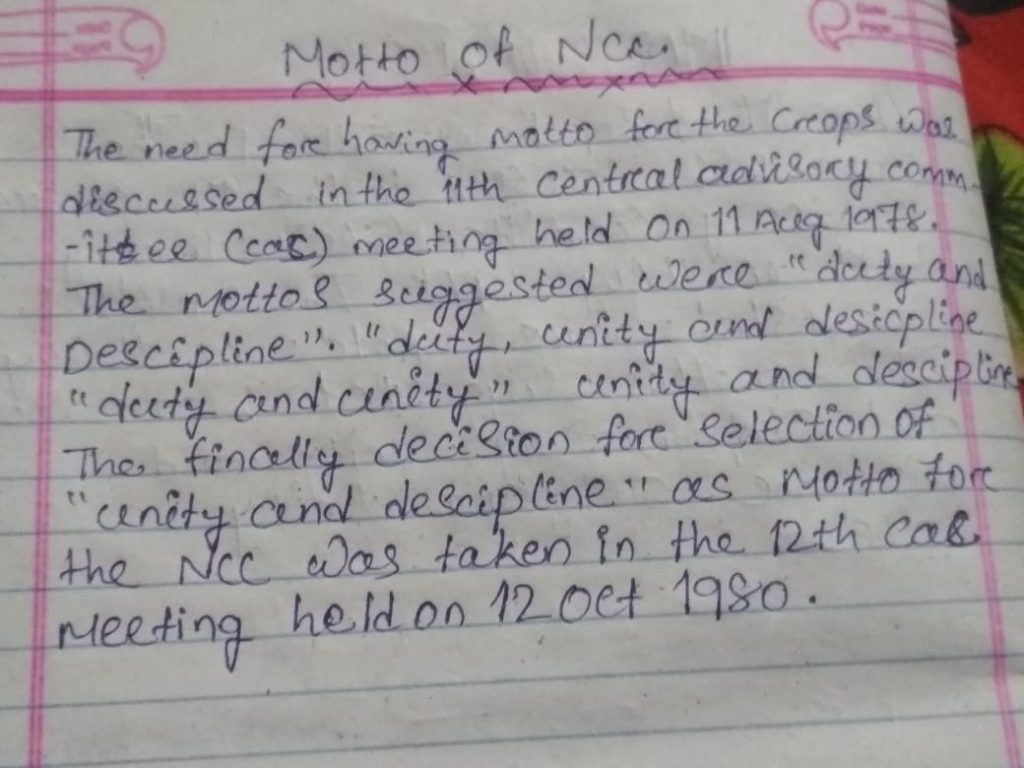 Motto of Ncc.
The need fore having motto fore the Creops was
discussed in the 11th Central advisory comm-
-ittee (cac) meeting held on 11 Aug 1978.
The Mottos suggested were "duty and
Descipline". "duty, unity and desicpline
"duty and unity" unity and descipline
The finally decision fore selection of
"unity and descipline" as Motto fore
the Ncc was taken in the 12th cac
Meeting held on 12 Oct 1980.